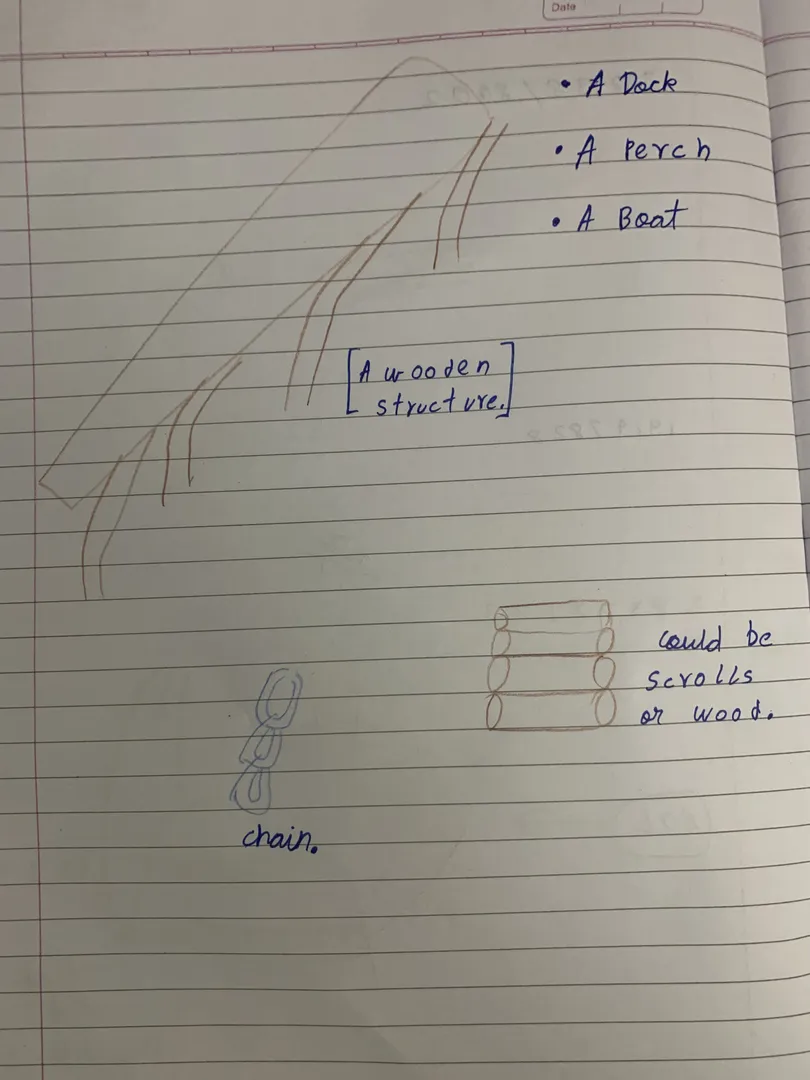 Date
• A Dock
• A Perch
• A Boat
[A wooden
structure.]
could be
scrolls
or wood.
chain.